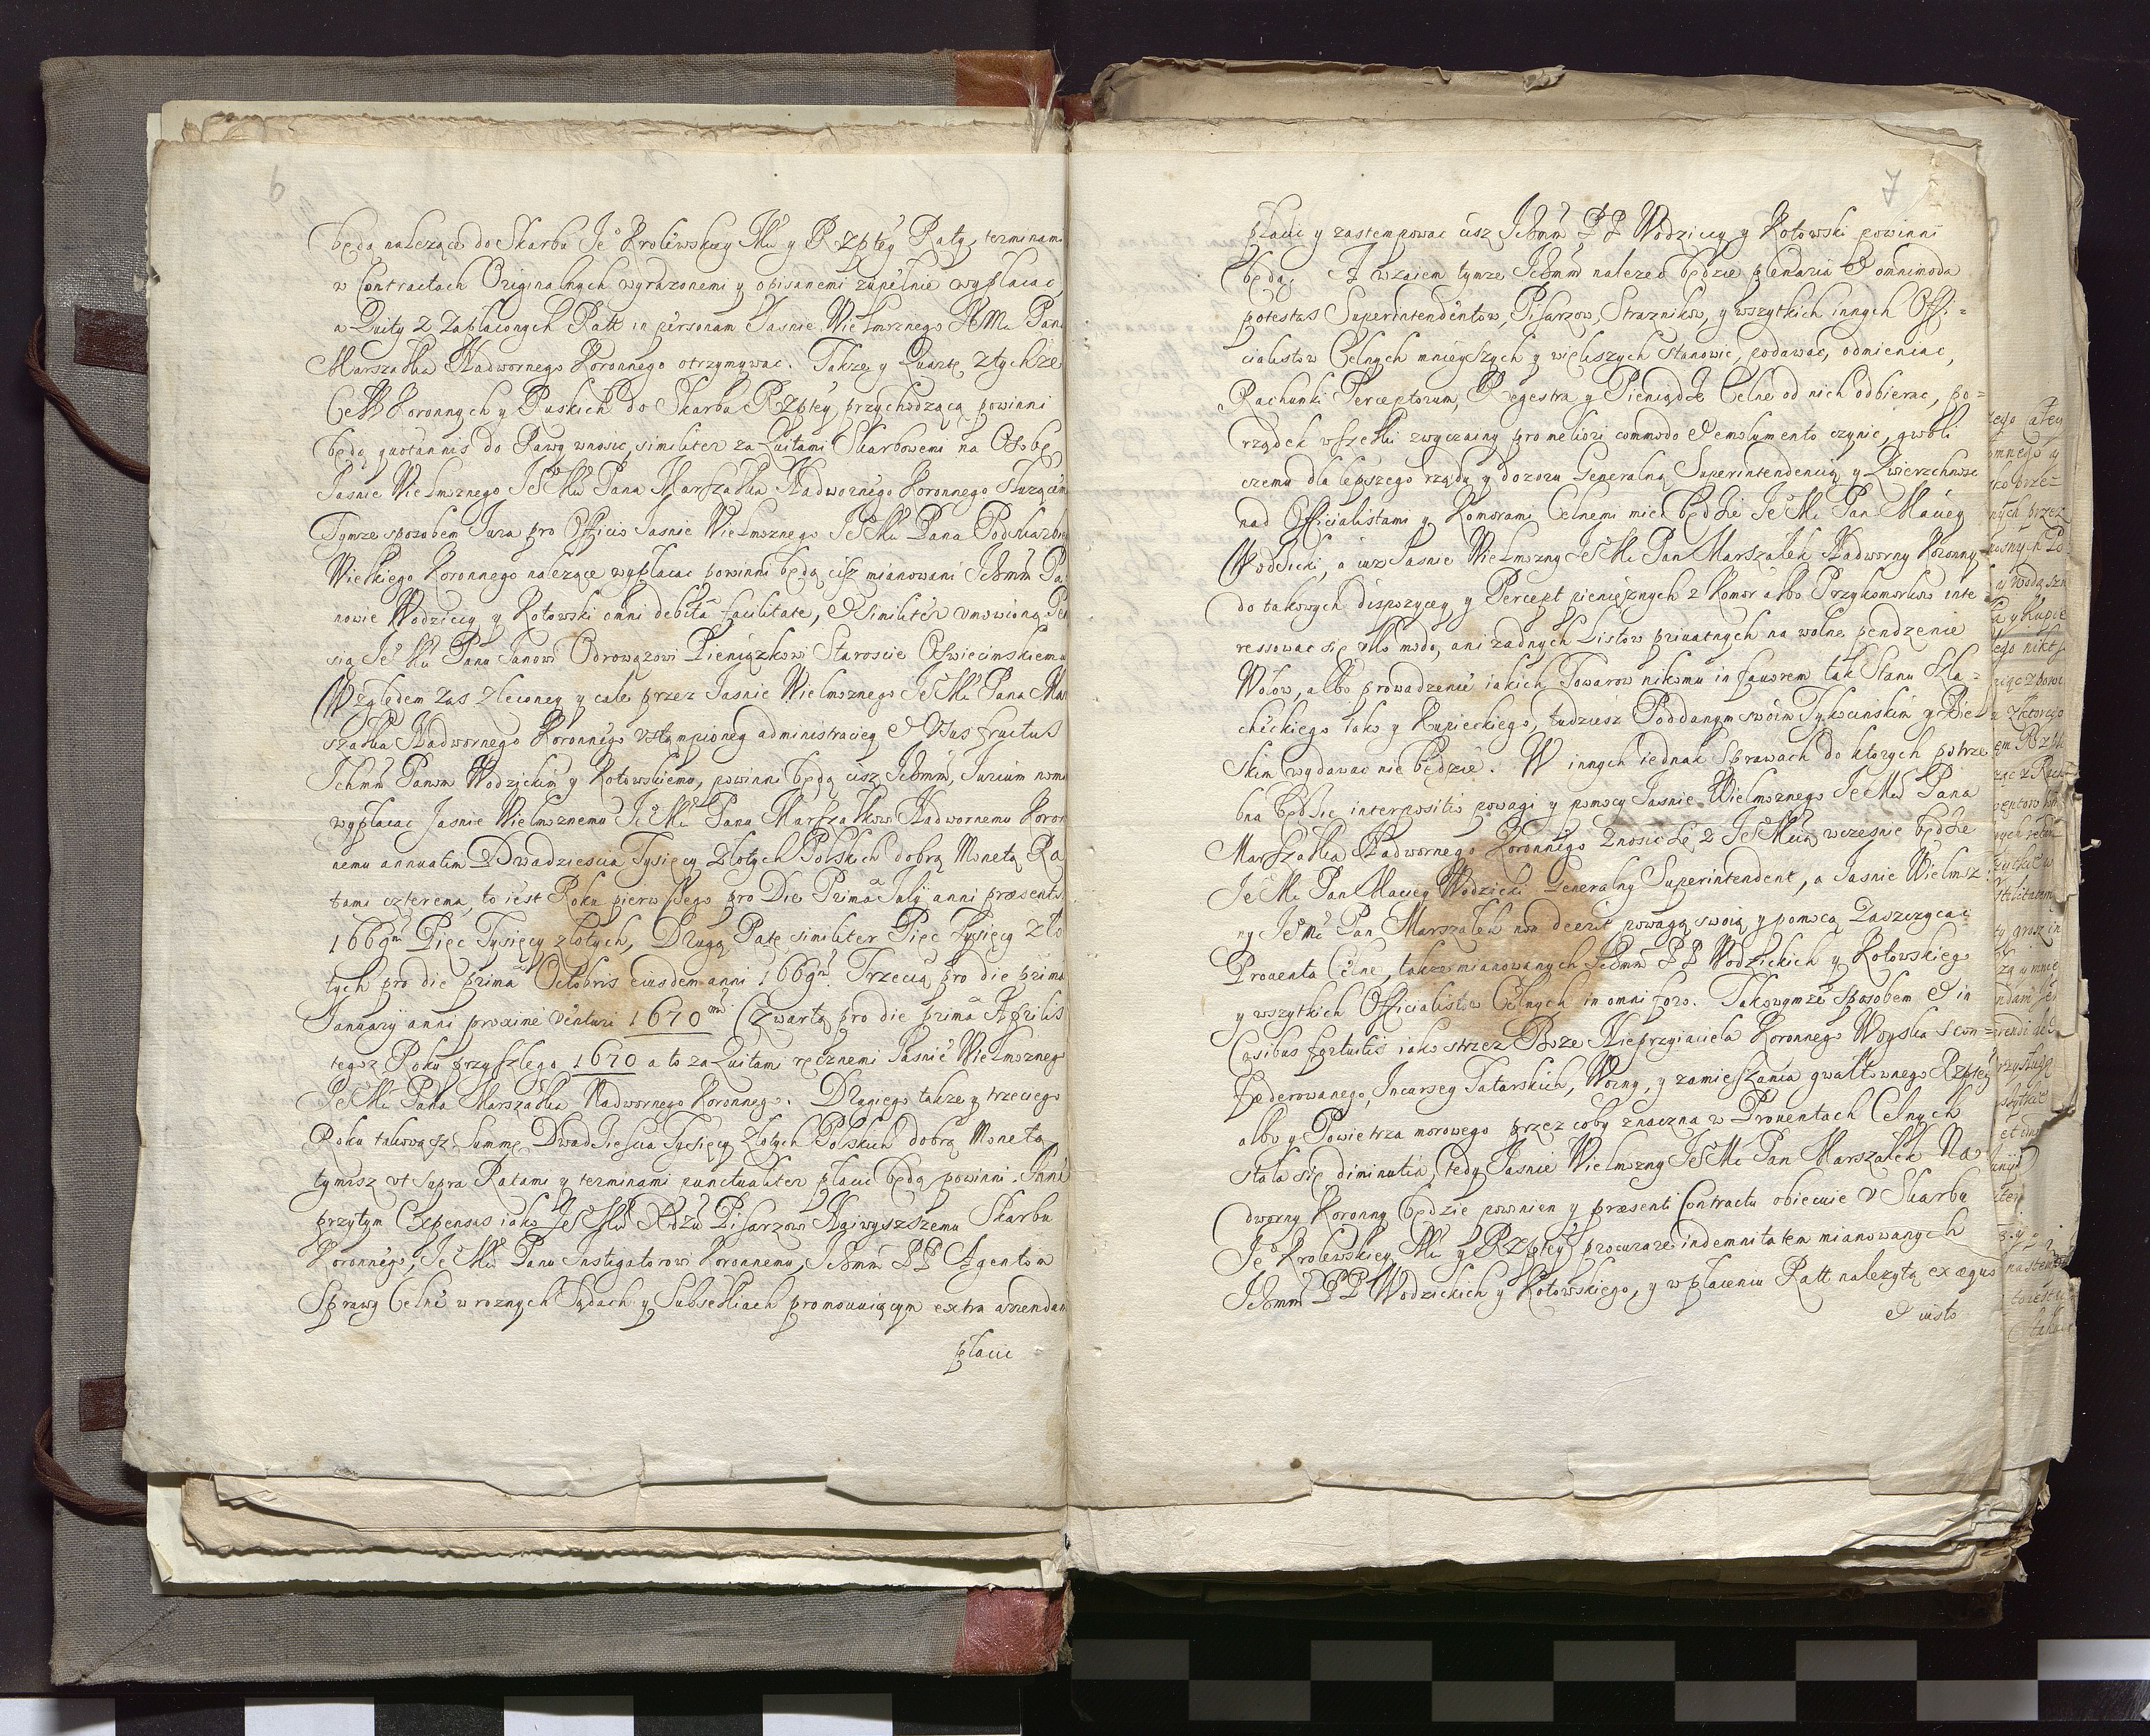 6
będą należące do Skarbu Je° Krolewskiey Mći y RZptey Raty, terminami
w Contractach Originalnych wyrazonemi y opisanemi zupełnie wypłacac
a Quity z Zapłaconych Ratt in personam Jasnie Wielmoznego JEMći Pana
Marszałka Nadwornego Koronnego otrzymywac. Takze y Quartę z tychze
Cełł Koronnych y Ruskich do Skarbu RZptey przychodzącą powinni
będą quotannis do Rawy wnosic, similiter za Quitami Skarbowemi na Osobę
Jasnie Wielmoznego JE°Mći Pana Marszałka Nadwornego Koronnego słuzącemi
Tymze sposobem Jura pro Officio Jasnie Wielmoznego JEMći Pana Podskarbie
Wielkiego Koronnego nalezące wypłacac powinni będą cisz mianowani Ichmm Pa
nowie Wodziccy y Kotowski omni debita facilitate, & similiter umowioną Pen
sią Je° Mći Panu Janowi Odrowązowi Pieniązkowi Staroscie Oswiecimskiemu
Względem zas zleconey y cale przez Jasnie Wielmoznego Je°Mći Pana Mar
szałka Nadwornego Koronnego ustąmpioney administracieg & Usus fructus
Ichmm Panom Wodzickim y Kotowskiemu, powinni będą cisz Ichmm, Jurium nomi
wypłacac Jasnie Wielmoznemu Je°Mći Panu Marszałkowi Nadwornemu Koron
nemu annuatim Dwadziescia Tysięcy Złotych Polskich dobrą Monetą Ra
tami czterema, to iest Roku pierwszego pro Die Prima July anni præsentis
1669ni Pięc Tysięcy złotych, Drugą Ratę similiter Pięc Tysięcy zło
tych pro die prima Octobris eiusdem anni 1669ni. Trzecią pro die prima
January anni proxime venturi 1670mi Czwartą pro die prima Aprilis
tegoz Roku przyszłego 1670 a to za Quitami ręcznemi Jasnie Wielmoznego
JE°Mći Pana Marszałka Nadwornego Koronnego. Drugiego takze y trzeciego
Roku takowąsz Summę Dwadziescia Tysięcy Złotych Polskich dobrą Monetą
tymisz ut supra Ratami y terminami punctualiter płacic będą powinni. Inne
przytym Expensas iako Je°Mći Xdzu Pisarzowi Naiwyszszemu Skarbu
Koronnego, Je°Mći Panu Instigatorowi Koronnemu, Ichmm PP Agentom
Sprawy Celne w roznych Sądach y Subselliach promowuiącym extra arendam
płacic
7
płacic y zastempowac cisz Ichmm PP Wodziccy y Kotowski powinni
będą. A wzaiem tymze Ichmm nalezec będzie plenaria & omnimoda
potestas Superintendentow, Pisarzow, Straznikow, y wszytkich innych Offi=
cialistow Celnych mnieyszych y większych stanowic, podawac, odmieniac,
Rachunki Perceptorum, Regestra y Pieniądze Celne od nich odbierac, po=
rządek wszelki zwyczainy pro meliori commodo & emolumento czynic, gwoli
czemu dla lepszego rządu y dozoru Generalną Superintendencią y Zwierzchnosc
nad Officialistami y Komorami Celnemi miec będzie Je°Mć Pan Maciey
Wodzicki, a iusz Jasnie Wielmozny Je°Mć Pan Marszałek Nadworny Koronny
do takowych dispozycyey y Percept pieniężnych z Komor albo Przykomorkow inte
ressowac się nullo modo, ani zadnych Listow priuatnych na wolne pendzenie
Wołow, albo prowadzenie iakich Towarow nikomu in fauorem tak Stanu Szla=
checkiego iako y Kupieckiego, tudziesz Poddanym swoim Tykocinskim y Biel
skim wydawac nie będzie. W innych iednak Sprawach do ktorych potrze
bna będzie interpositio powagi y pomocy Jasnie Wielmoznego Je°Mći Pana
Marszałka Nadwornego Koronnego znosic się z Je°Mcią wczesnie będzie
Je°Mć Pan Maciey Wodzicki Generalny Superintendent, a Jasnie Wielmoz
ny Je°Mć Pan Marszałek non deerit powagą swoią y pomocą Zaszczycac
Prouenta Celne, takze mianowanych Ichmm PP Wodzickich y Kotowskiego
y wszytkich Officialistow Celnych in omni foro. Takowymze sposobem & in
Casibus fortuitis iako strzez Boze Nieprzyiaciela Koronnego Woyska scon=
fæderowanego, Incursey Tatarskich, Woyny, y zamieszania gwałtownego RZptey
albo y Powietrza morowego przez coby znaczna w Prouentach Celnych
stała się diminutia, tedy Jasnie Wielmozny Je°Mć Pan Marszałek Na
dworny Koronny będzie powinien y præsenti Contractu obiecuie u Skarbu
Je° Krolewskiey Mći y RZptey procurare indemnitatem mianowanych
Ichmm PP Wodzickich y Kotowskiego, y w płaceniu Ratt nalezytą ex æquo
& iusto